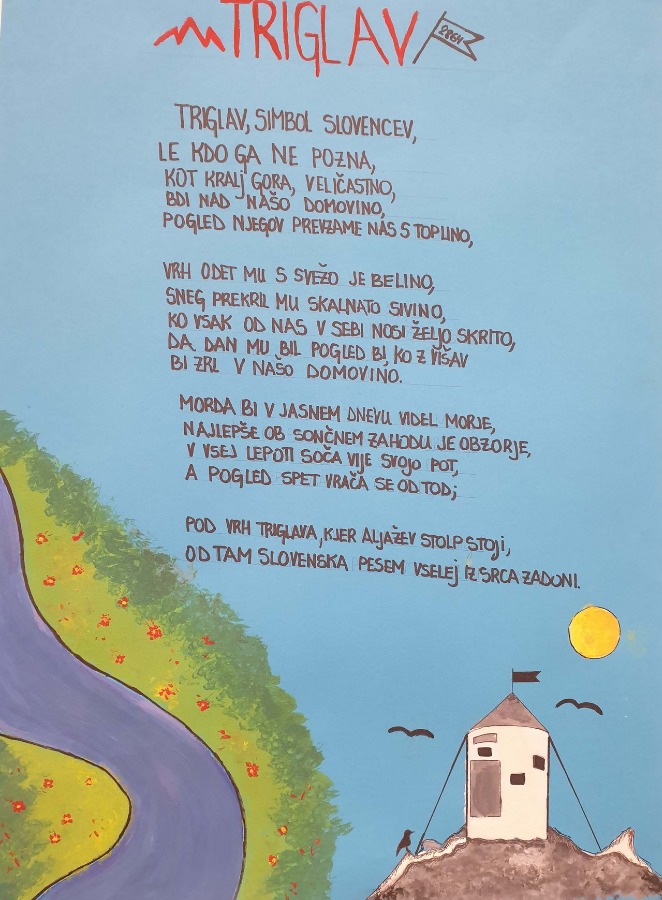 TRIGLAV
2864
TRIGLAV, SIMBOL SLOVENCEV,
LE KDO GA NE POZNA,
KOT KRALJ GORA, VELIČASTNO,
BDI NAD NAŠO DOMOVINO,
POGLED NJEGOV PREVZAME NAS S TOPLINO,
VRH ODET MU S SVEŽO JE BELINO,
SNEG PREKRIL MU SKALNATO SIVINO,
KO VSAK OD NAS V SEBI NOSI ŽELJO SKRITO,
DA DAN MU BIL POGLED BI, KO Z VIŠAV
BI ZRL V NAŠO DOMOVINO.
MORDA BI V JASNEM DNEVU VIDEL MORJE,
NAJLEPŠE OB SONČNEM ZAHODU JE OBZORJE,
V VSEJ LEPOTI SOČA VIJE SVOJO POT,
A POGLED SPET VRAČA SE OD TOD;
POD VRH TRIGLAVA, KJER ALJAŽEV STOLP STOJI,
OD TAM SLOVENSKA PESEM VSELEJ IZ SRCA ZADONI.